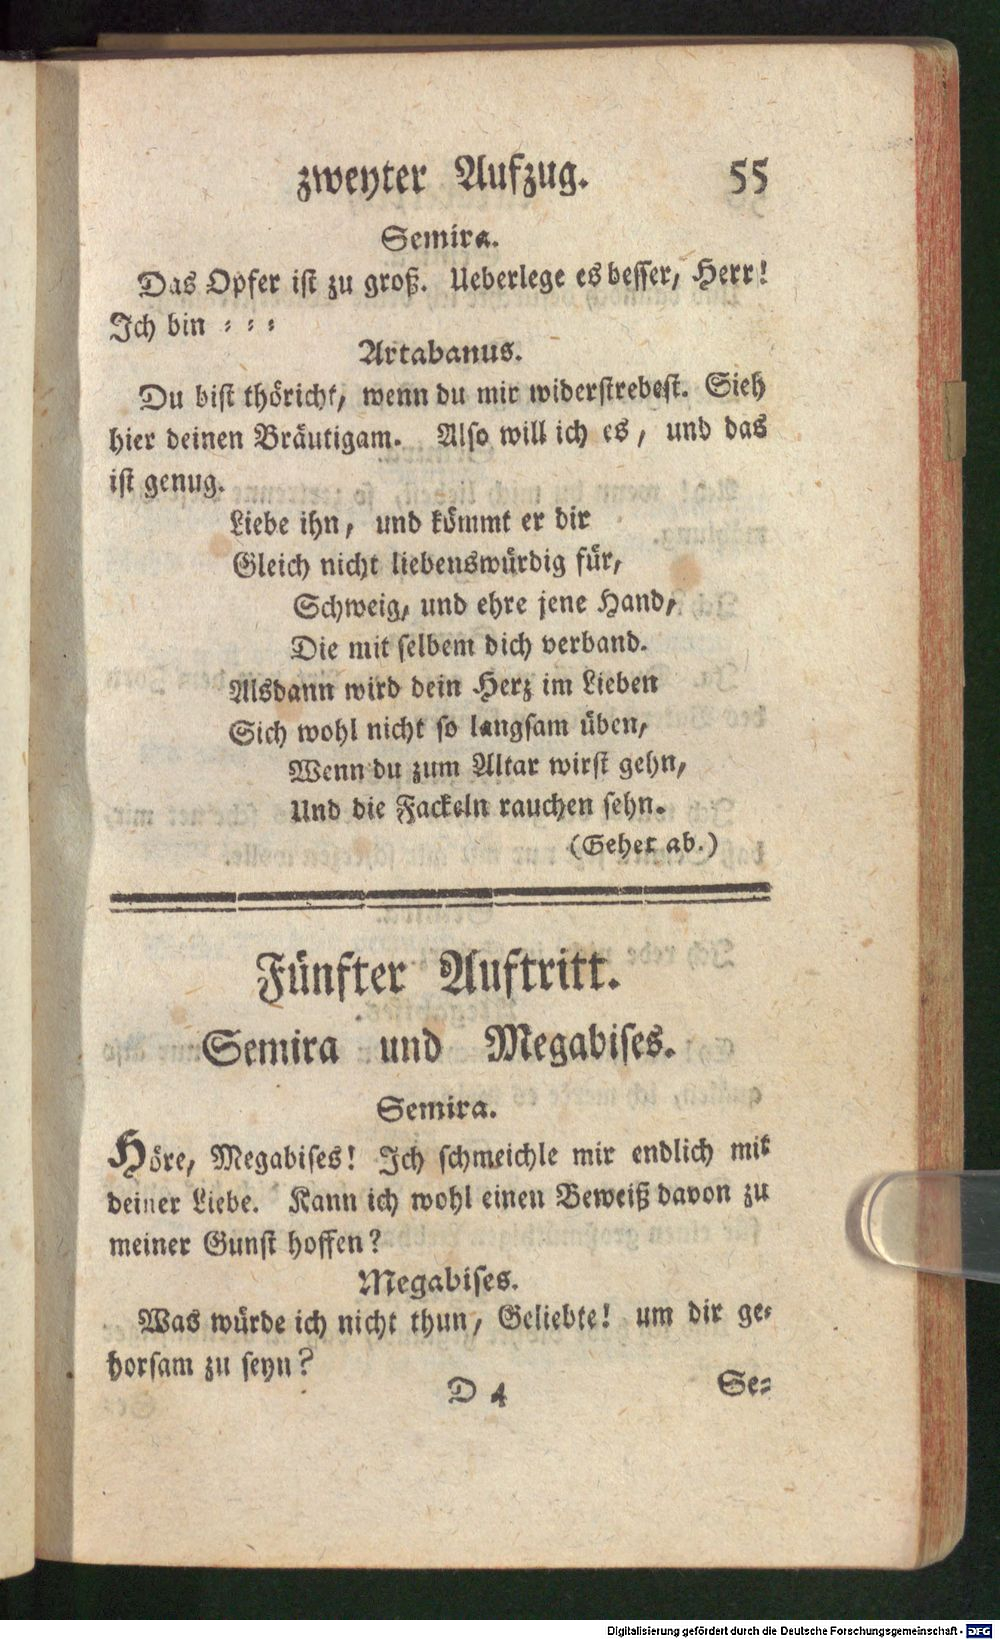 zweyter Aufzug. 55
Semira.
Das Opfer ist zu groß. Ueberlege es besser, Herr!
Ich bin = = =
Artabanus.
Du bist thöricht, wenn du mir widerstrebest. Sieh
hier deinen Bräutigam. Also will ich es, und das
ist genug.
Liebe ihn, und kömmt er dir
Gleich nicht liebenswürdig für,
Schweig, und ehre jene Hand,
Die mit selbem dich verband.
Alsdann wird dein Herz im Lieben
Sich wohl nicht so langsam üben,
Wenn du zum Altar wirst gehn,
Und die Fackeln rauchen sehn.
(Gehet ab.)
Fünfter Auftritt.
Semira und Megabises.
Semira.
Höre, Megabises! Ich schmeichle mir endlich mit
deiner Liebe. Kann ich wohl einen Beweiß davon zu
meiner Gunst hoffen?
Megabises.
Was würde ich nicht thun, Geliebte! um dir ge=
horsam zu seyn?
D 4 Se=
Digitalisierung gefördert durch die Deutsche Forschungsgemeinschaft - DFG